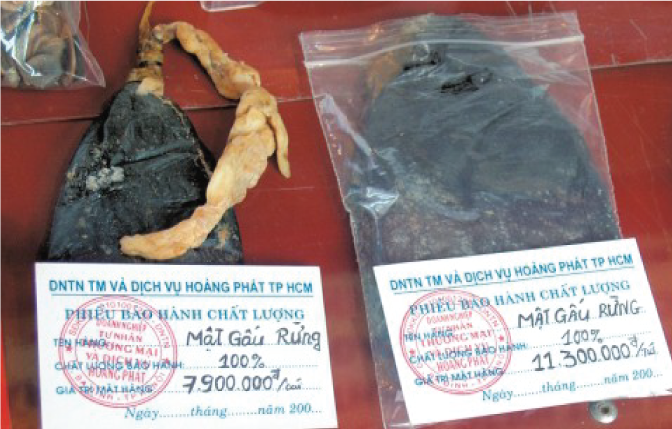 DNTN TM VÀ DỊCH VỤ HOÀNG PHÁT TP HCM
PHIẾU BẢO HÀNH CHẤT LƯỢNG
TÊN HÀNG: MẬT GẤU RỪNG
CHẤT LƯỢNG BẢO HÀNH: 100%
GIÁ TRỊ MẶT HÀNG: 7.900.000đ/cái
Ngày.......tháng.........năm 200...
DOANH NGHIỆP
TƯ NHÂN
THƯƠNG MẠI
VÀ DỊCH VỤ
HOÀNG PHÁT
DNTN TM VÀ DỊCH VỤ HOÀNG PHÁT TP HCM
PHIẾU BẢO HÀNH CHẤT LƯỢNG
TÊN HÀNG: MẬT GẤU RỪNG
CHẤT LƯỢNG BẢO HÀNH: 100%
GIÁ TRỊ MẶT HÀNG: 11.300.000đ/cái
Ngày.......tháng.........năm 200...
DOANH NGHIỆP
TƯ NHÂN
THƯƠNG MẠI
VÀ DỊCH VỤ
HOÀNG PHÁT